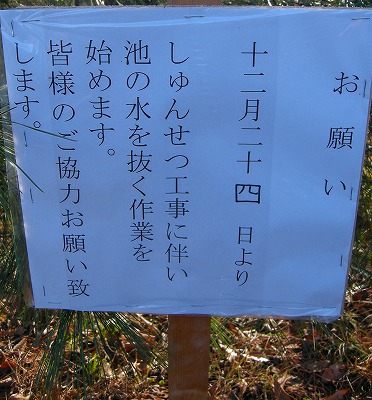 お願い
十二月二十四日より
しゅんせつ工事に伴い
池の水を抜く作業を
始めます。
皆様のご協力お願い致
します。